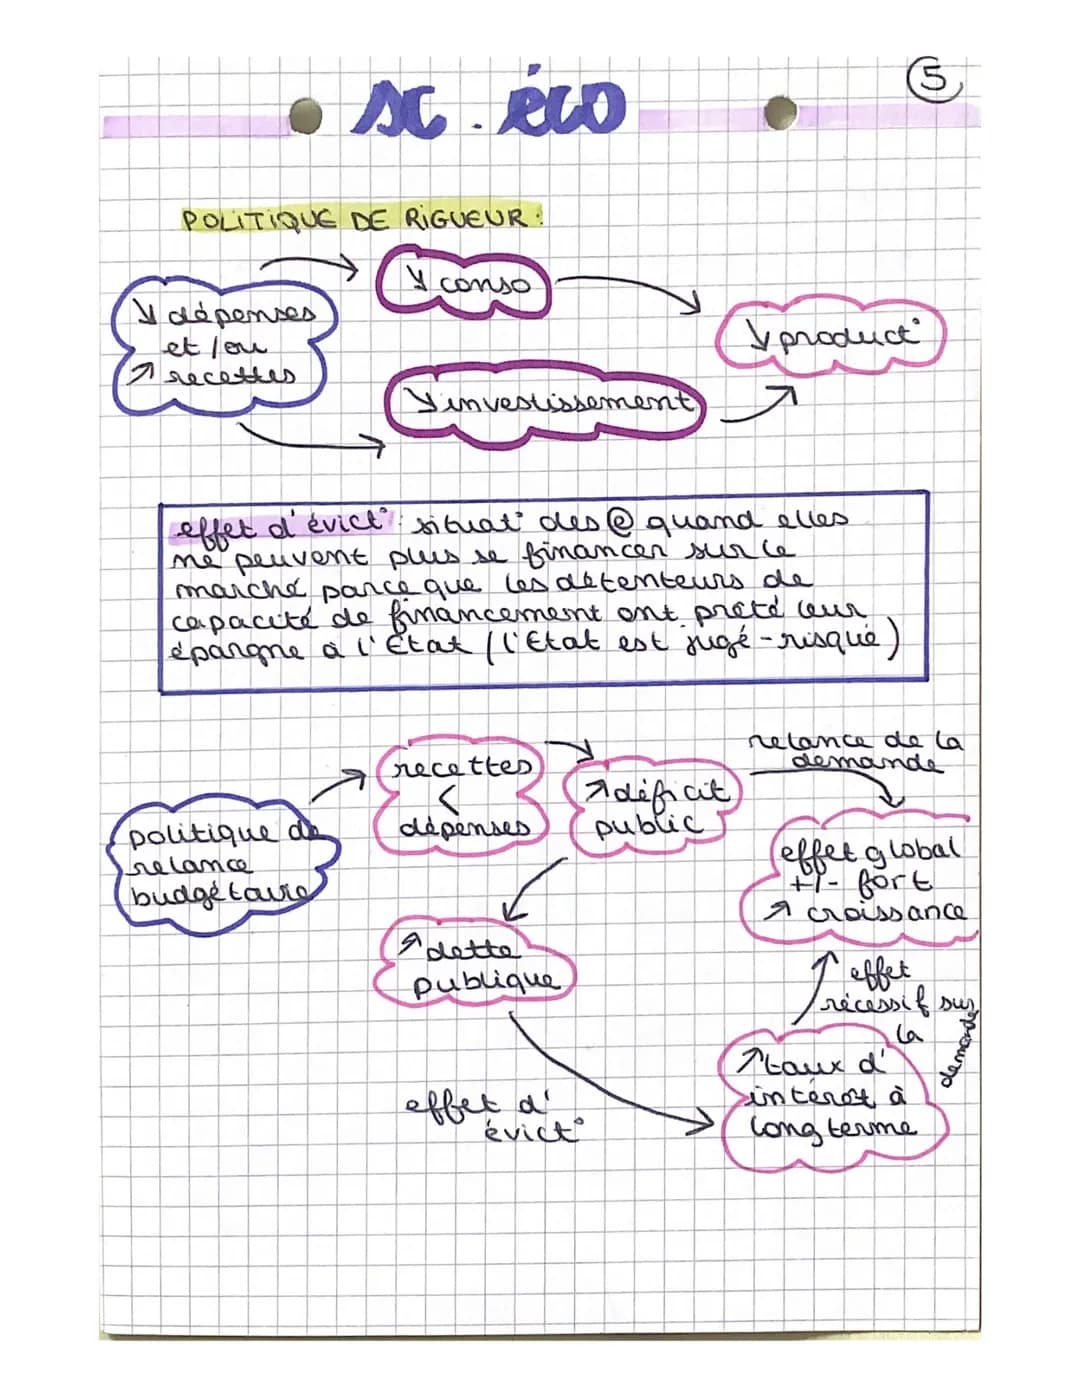 5
sc. éco
POLITIQUE DE RIGUEUR :
↘ dépenses
et / ou
↗ recettes
↘ conso
↘ investissement
↘ product°
effet d'évict° : situat° des @ quand elles
ne peuvent plus se financer sur le
marché parce que les détenteurs de
capacité de financement ont prêté leur
épargne à l'État (l'État est jugé - risqué)
politique de
relance
budgétaire
recettes
<
dépenses
↗ déficit
public
relance de la
demande
effet global
+/- fort
↗ croissance
↗ dette
publique
effet
récessif sur
la
demande
↗ taux d'
intérêt à
long terme
effet d'
évict°